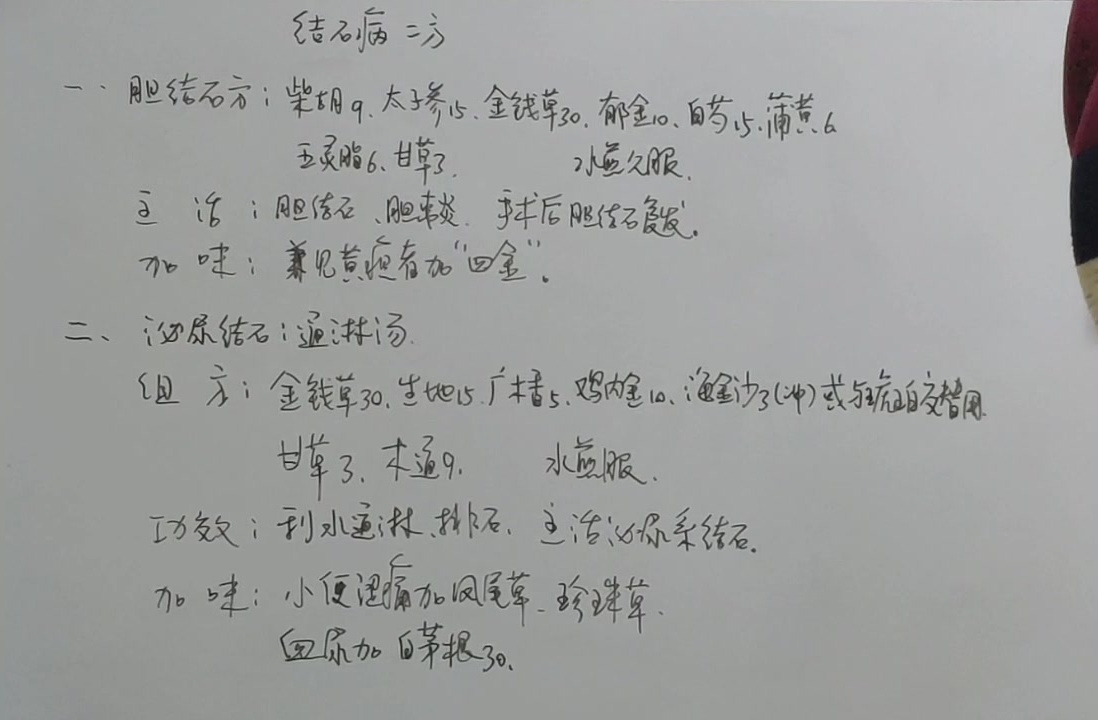 结石病二方
一、胆结石方:柴胡9、太子参15、金钱草30、郁金10、白芍15、蒲黄6
五灵脂6、甘草3. 水煎久服.
主治:胆结石、胆囊炎. 手术后胆结石复发.
加味:兼见黄疸者加“四金”.
二、泌尿结石:通淋汤.
组方:金钱草30、生地15、广木香5、鸡内金10、海金沙3(冲)或与琥珀交替用.
甘草3、木通9. 水煎服.
功效:利水通淋、排石. 主治泌尿系结石.
加味:小便涩痛加凤尾草、珍珠草.
血尿加白茅根30.